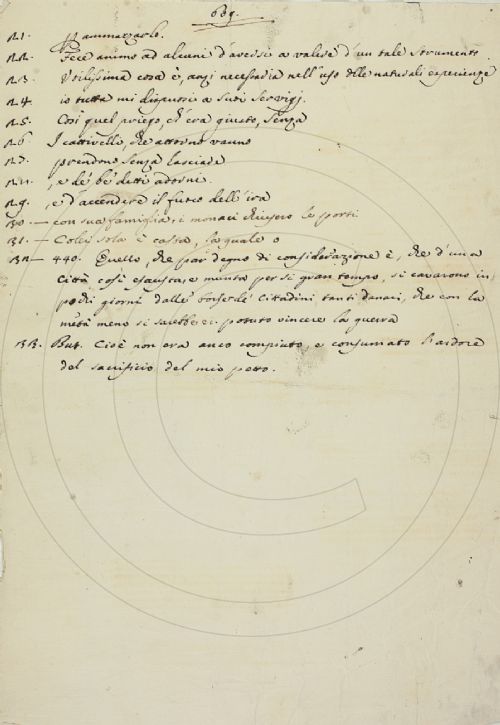 639.
21. p ammazzarlo.
22. Fece animo ad alcuni d'aversi a valere d'un tale strumento.
23. Utilissima cosa è, anzi necessaria nell'uso delle naturali esperienze
24. io tutta mi disposi a suoi servigj.
25. Così quel priego, ch'era giusto, senza
26. I cattivelli, che attorno vanno
27. prendono senza lasciare
, e de' be' detti adorni.
29. , ed accendere il fuoco dell'ira
30. — con sua famiglia, i monaci chiesero le porti
31. — Colei sola è casta, la quale o
440. Quello, che par degno di considerazione è, che d'una
Città così esausta, e munta per sì gran tempo, si cavarono in
pochi giorni dalle borse de' Cittadini tanti danari, che con la
metà meno si sarebbe potuto vincere la guerra
33. But. Cioè non era anco compiuto, e consumato l'ardore
del sacrificio del mio petto.